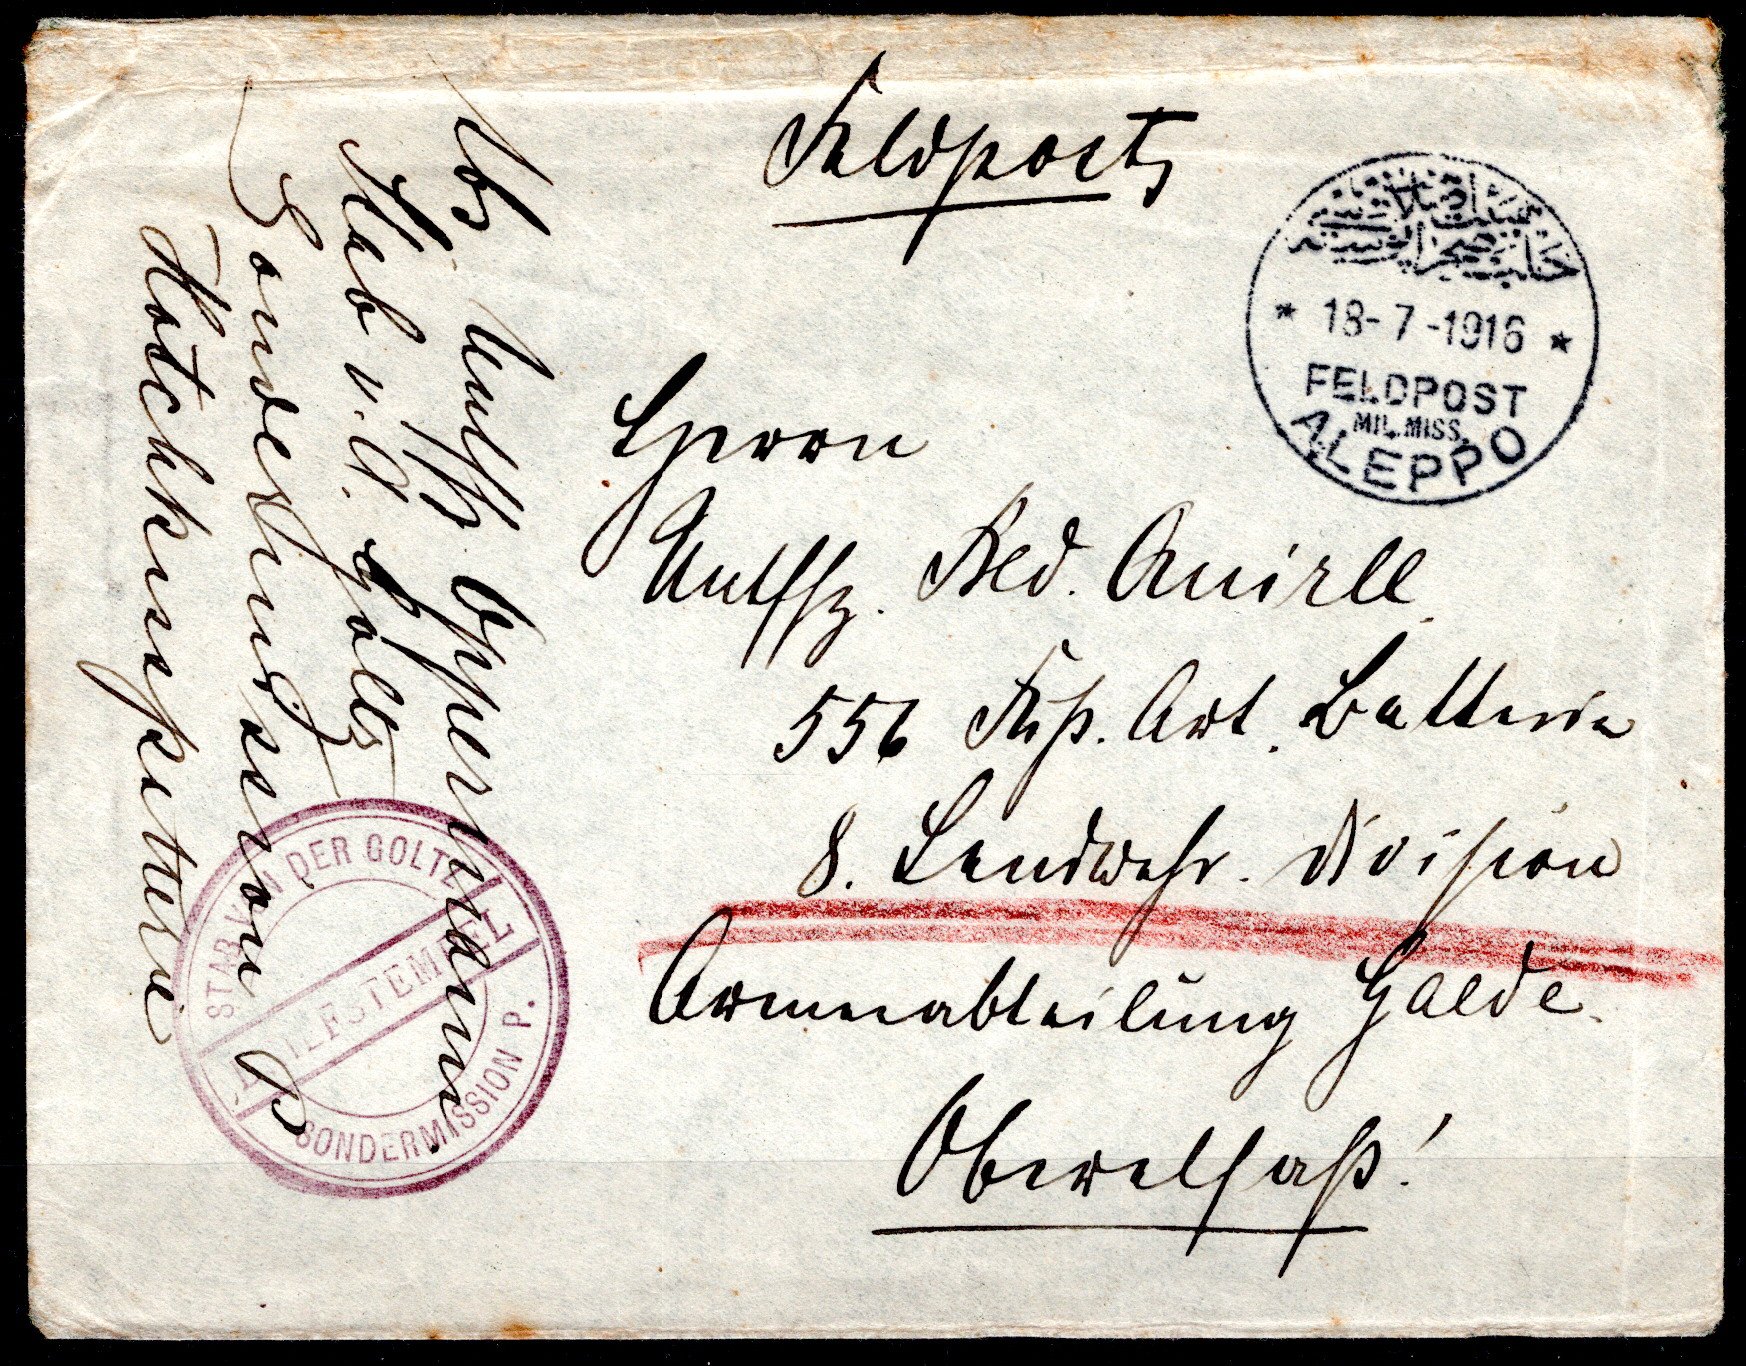 Feldpost
18-7-1916
FELDPOST
MIL. MISS.
ALEPPO
Herrn
Untffz. Fed. Quirll
556 Fuß. Art. Batterie
8. Landwehr. Division
Armeeabteilung Gaede.
Oberelsaß!
Abs Untffz. Oppermann
Stab v. d. Goltz
Sondermission P
STAB VON DER GOLTZ
HILFSTEMPEL
SONDERMISSION P.